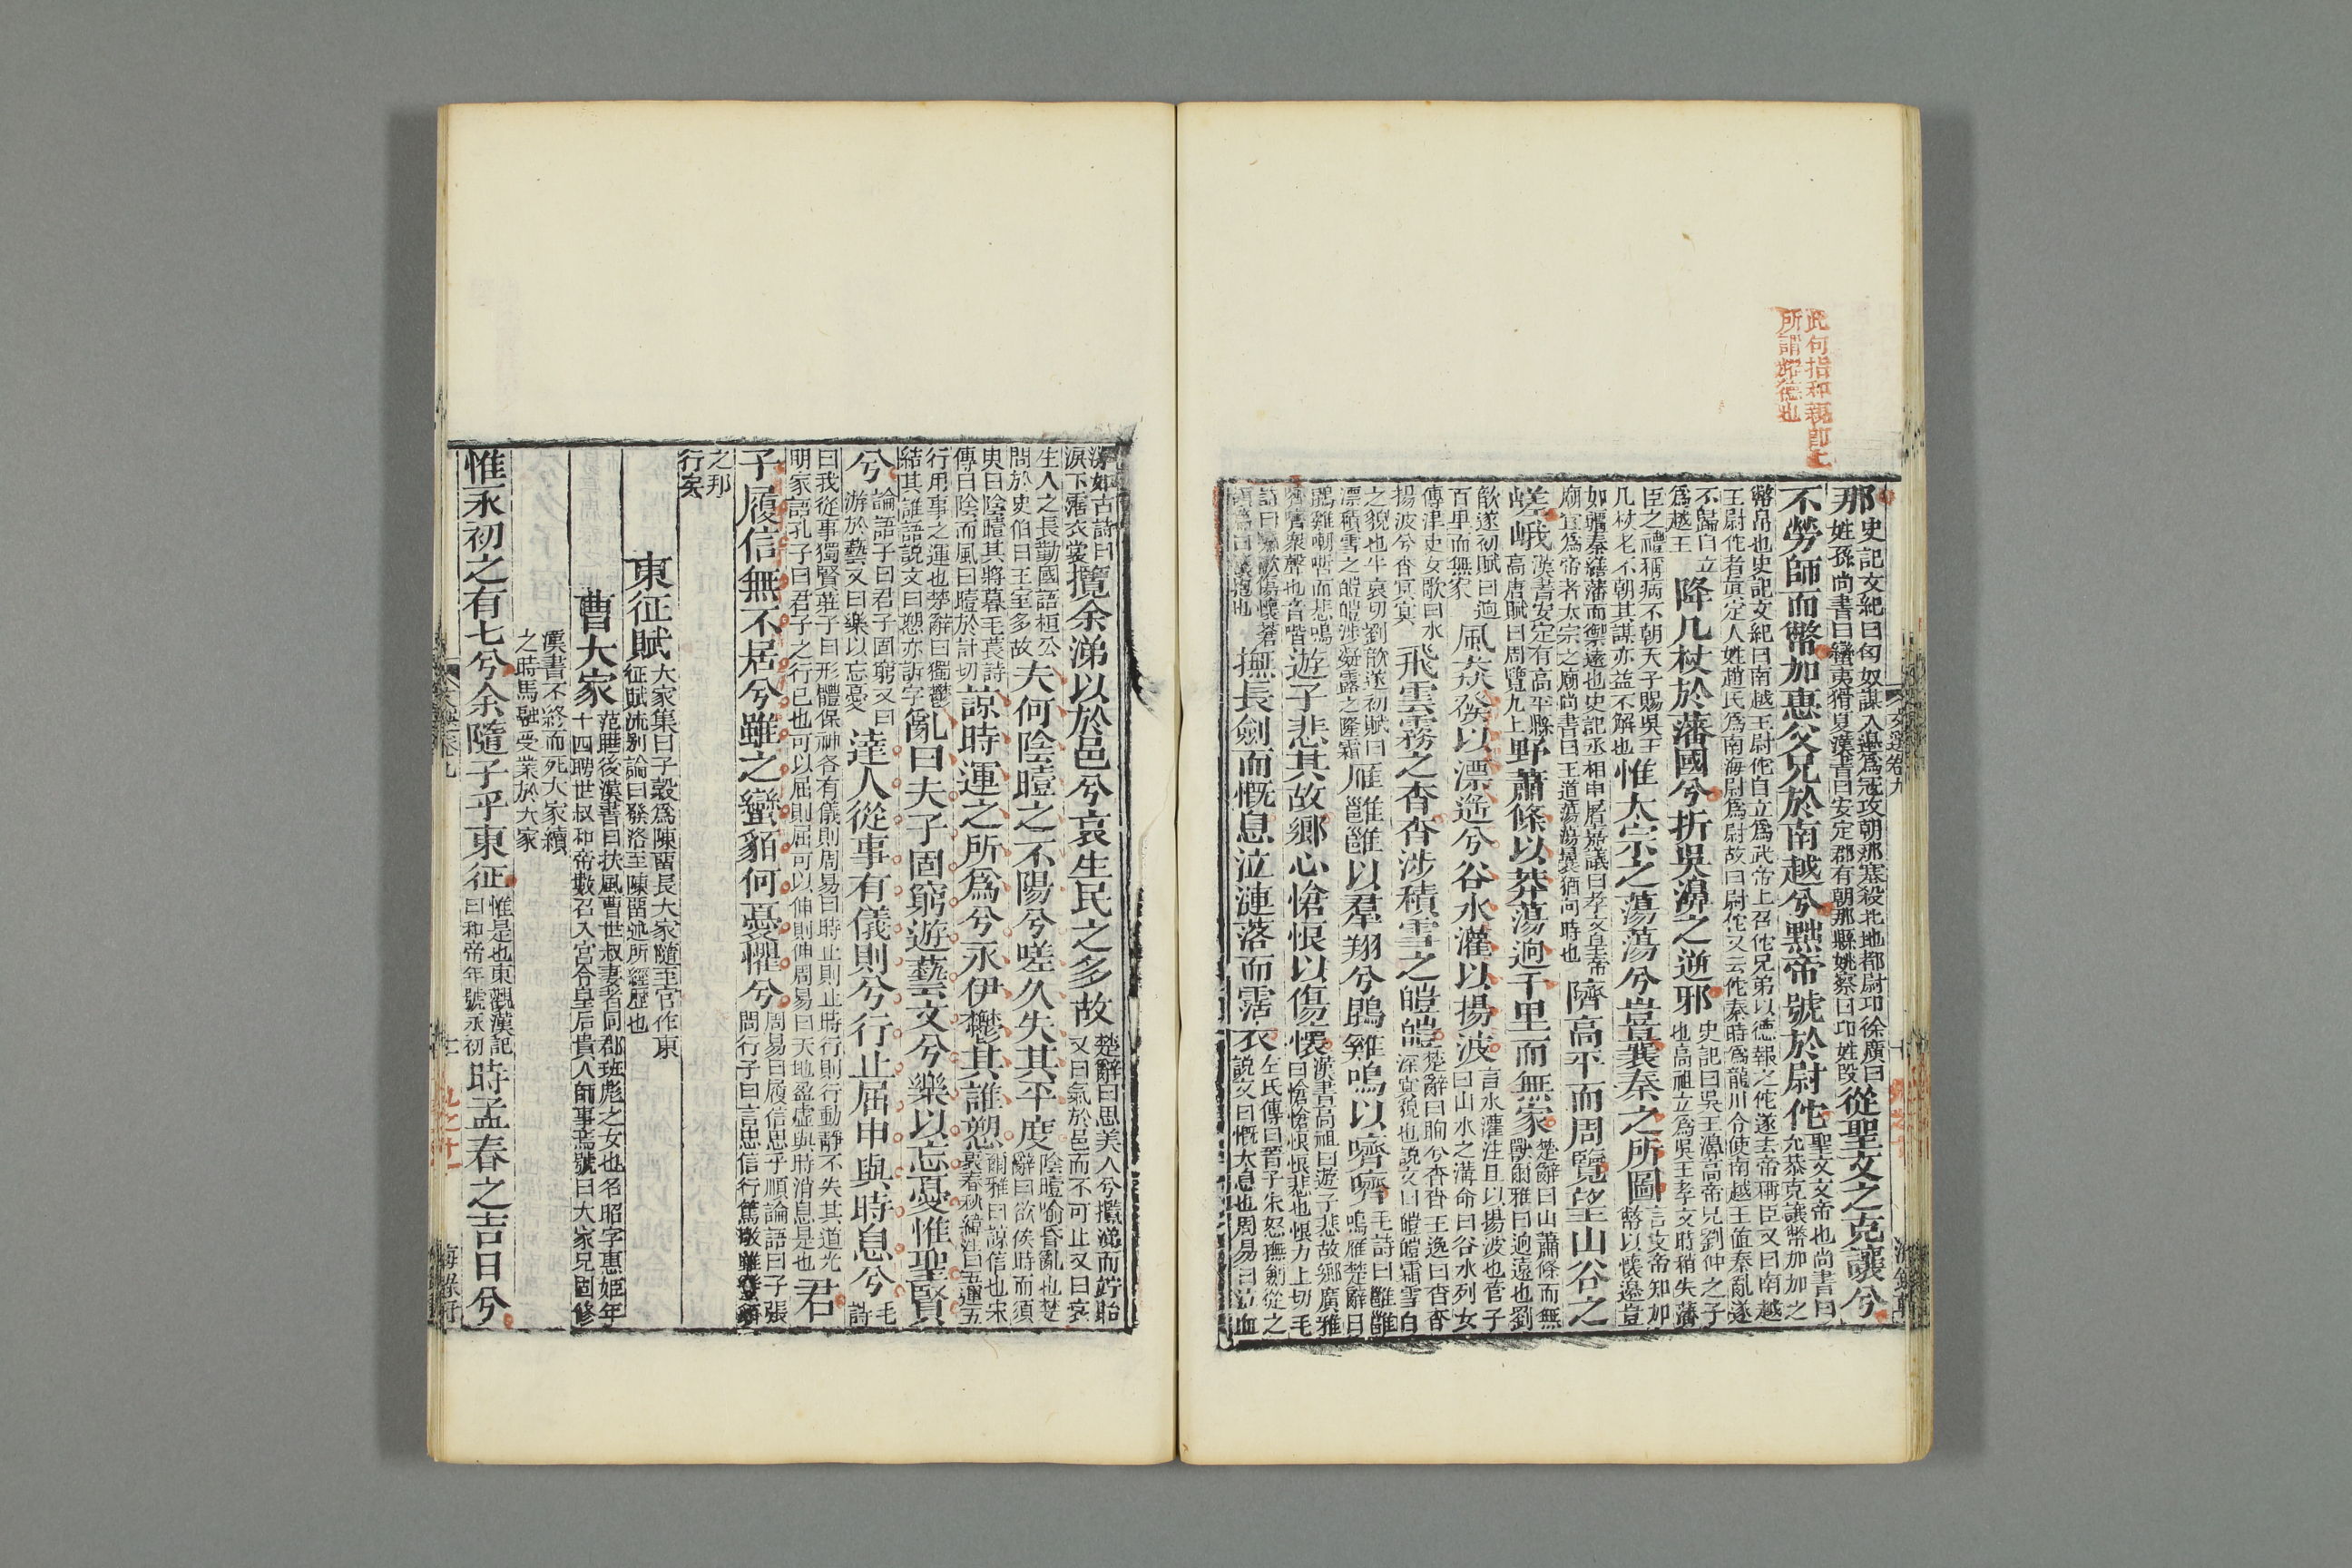 此句指和親即上
所謂耀德也
那史記文紀曰匈奴謀入邊為寇攻朝那塞殺北地都尉卭徐廣曰
姓孫尚書曰蠻夷猾夏漢書曰安定郡有朝那縣姚察曰卭姓段從聖文之克讓兮
不勞師而幣加惠父兄於南越兮黜帝號於尉佗聖文文帝也尚書曰
允恭克讓幣加加之
幣帛也史記文紀曰南越王尉佗自立為武帝上召佗兄弟以德報之佗遂去帝稱臣又曰南越
王尉佗者真定人姓趙氏為南海尉為尉故曰尉佗又云佗秦時為龍川令使南越王值秦亂遂
不歸自立
為越王降几杖於藩國兮折吳濞之逆邪史記曰吳王濞高帝兄劉仲之子
也高祖立為吳王孝文時稍失藩
臣之禮稱病不朝天子賜吳王
几杖老不朝其謀亦益不解也惟太宗之蕩蕩兮豈曩秦之所圖言文帝知加
幣以懷邊豈
如疆秦繕藩而禦遠也史記丞相申屠嘉議曰孝文皇帝
廟宜為帝者太宗之廟尚書曰王道蕩蕩曩猶向時也隮高平而周覽望山谷之
嵯峨漢書安定有高平縣
高唐賦曰周覽九上野蕭條以莽蕩迥千里而無家楚辭曰山蕭條而無
獸爾雅曰迥遠也劉
歆遂初賦曰迥
百里而無家風猋發以漂遙兮谷水灌以揚波言水灌注且以揚波也管子
曰山水之溝命曰谷水列女
傳津吏女歌曰水
揚波兮杳冥冥飛雲霧之杳杳涉積雪之皚皚楚辭曰眴兮杳杳王逸曰杳杳
深冥貌也說文曰皚皚霜雪白
之貌也牛哀切劉歆遂初賦曰
漂積雪之皚皚涉凝露之隆霜雁雝雝以羣翔兮鵾雞鳴以嚌嚌毛詩曰雝雝
鳴雁楚辭曰
鵾雞嘲哳而悲鳴
嚌嚌衆聲也音喈遊子悲其故鄉心愴悢以傷懷漢書高祖曰遊子悲故鄉廣雅
曰愴愴悢悢悲也悢力上切毛
詩曰嘯歌傷懷
撫長劍而慨息泣漣落而霑衣左氏傳曰晉子朱怒撫劍從之
說文曰慨太息也周易曰泣血
漣如古詩曰
淚下霑衣裳攬余涕以於邑兮哀生民之多故楚辭曰思美人兮攬涕而竚眙
又曰氣於邑而不可止又曰哀
生人之長勤國語桓公
問於史伯曰王室多故夫何陰曀之不陽兮嗟久失其平度陰曀喻昏亂也楚
辭曰欲俟時而須
臾曰陰曀其將暮毛萇詩
傳曰陰而風曰曀於計切諒時運之所為兮永伊鬱其誰愬爾雅曰諒信也宋
衷春秋緯注曰五運五
行用事之運也楚辭曰獨鬱
結其誰語說文曰愬亦訴字亂曰夫子固窮遊藝文兮樂以忘憂惟聖賢
兮論語子曰君子固窮又曰
游於藝又曰樂以忘憂達人從事有儀則兮行止屈申與時息兮毛
詩
曰我從事獨賢莊子曰形體保神各有儀則周易曰時止則止時行則行動靜不失其道光
明家語孔子曰君子之行己也可以屈則屈可以伸則伸周易曰天地盈虛與時消息是也君
子履信無不居兮雖之蠻貊何憂懼兮周易曰履信思乎順論語曰子張
問行子曰言忠信行篤敬雖蠻貊
之邦
行矣
東征賦大家集曰子穀為陳留長大家隨至官作東
征賦流別論曰發洛至陳留述所經歷也
曹大家范曄後漢書曰扶風曹世叔妻者同郡班彪之女也名昭字惠姬年
十四聘世叔和帝數召入宮令皇后貴人師事焉號曰大家兄固修
漢書不終而死大家續
之時馬融受業於大家
惟永初之有七兮余隨子乎東征惟是也東觀漢記
曰和帝年號永初時孟春之吉日兮